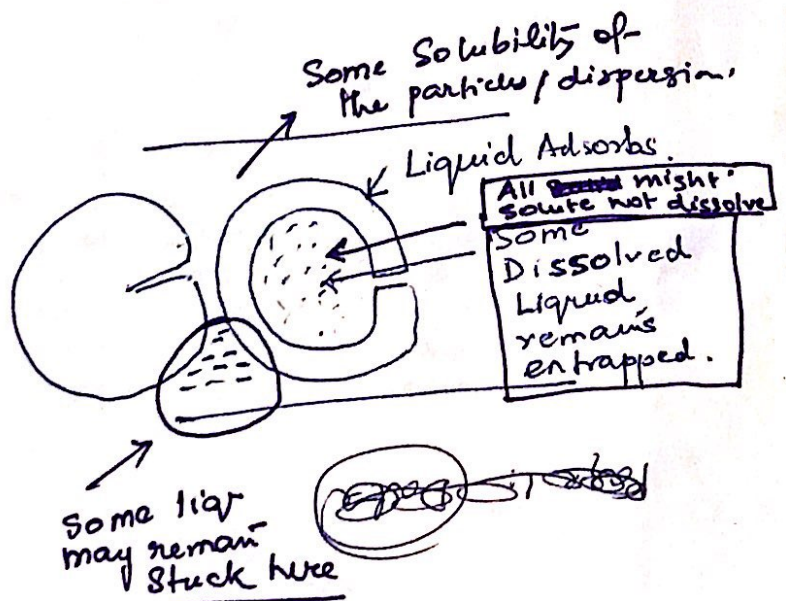 Some Solubility of
the particles / dispersion.
Liquid Adsorbs.
All might
solute not dissolve
Some
Dissolved
Liquid
remains
entrapped.
Some liqr
may remain
Stuck here